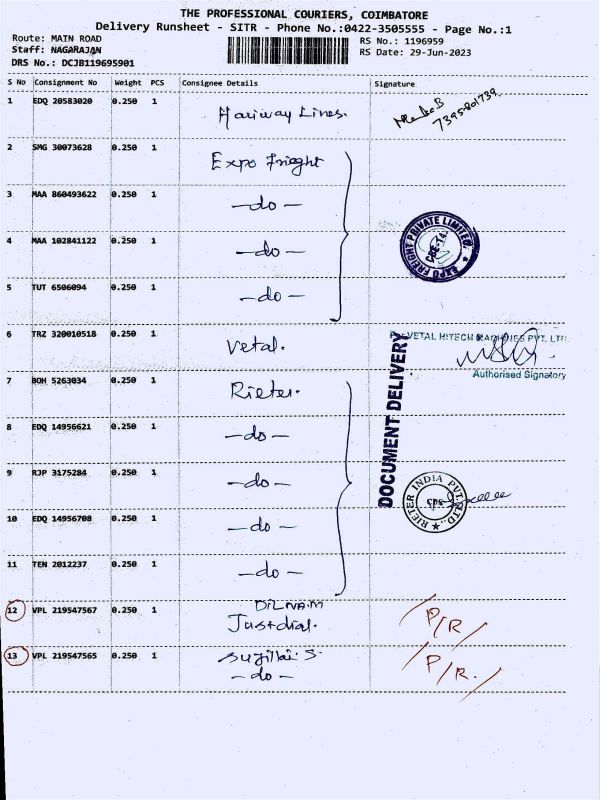 THE PROFESSIONAL COURIERS, COIMBATORE
Delivery Runsheet - SITR - Phone No.:0422-3505555 - Page No.:1
Route: MAIN ROAD
Staff: NAGARAJAN
DRS No.: DCJB119695901
RS No.: 1196959
RS Date: 29-Jun-2023
S No Consignment No Weight PCS Consignee Details Signature
1 EDQ 20583020 0.250 1 Hariway Lines.
7395801739
2 SMG 30073628 0.250 1 Expo Frieght
3 MAA 860493622 0.250 1 -do-
4 MAA 102841122 0.250 1 -do-
EXPO FREIGHT PRIVATE LIMITED.
CBE-14
5 TUT 6506094 0.250 1 -do-
6 TRZ 320010518 0.250 1 Vetal.
VETAL HITECH MACHINES PVT. LTD.
Authorised Signatory
DOCUMENT DELIVERY
7 BOH 5263034 0.250 1 Rieter.
8 EDQ 14956621 0.250 1 -do-
9 RJP 3175284 0.250 1 -do-
RIETER INDIA PVT. LTD.
10 EDQ 14956708 0.250 1 -do-
11 TEN 2012237 0.250 1 -do-
12 VPL 219547567 0.250 1 DILNA.M
Justdial.
/P/R/
13 VPL 219547565 0.250 1
-do-
/P/R./